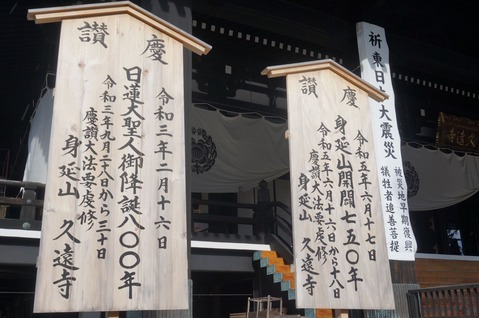 慶讃
令和三年二月十六日
日蓮大聖人御降誕八〇〇年
令和三年九月二十八日から三十日
慶讃大法要虔修
身延山 久遠寺
慶讃
令和五年六月十七日
身延山開闢七五〇年
令和五年六月十六日から十八日
慶讃大法要虔修
身延山 久遠寺
祈東日本大震災
被災地早期復興
犠牲者追善菩提